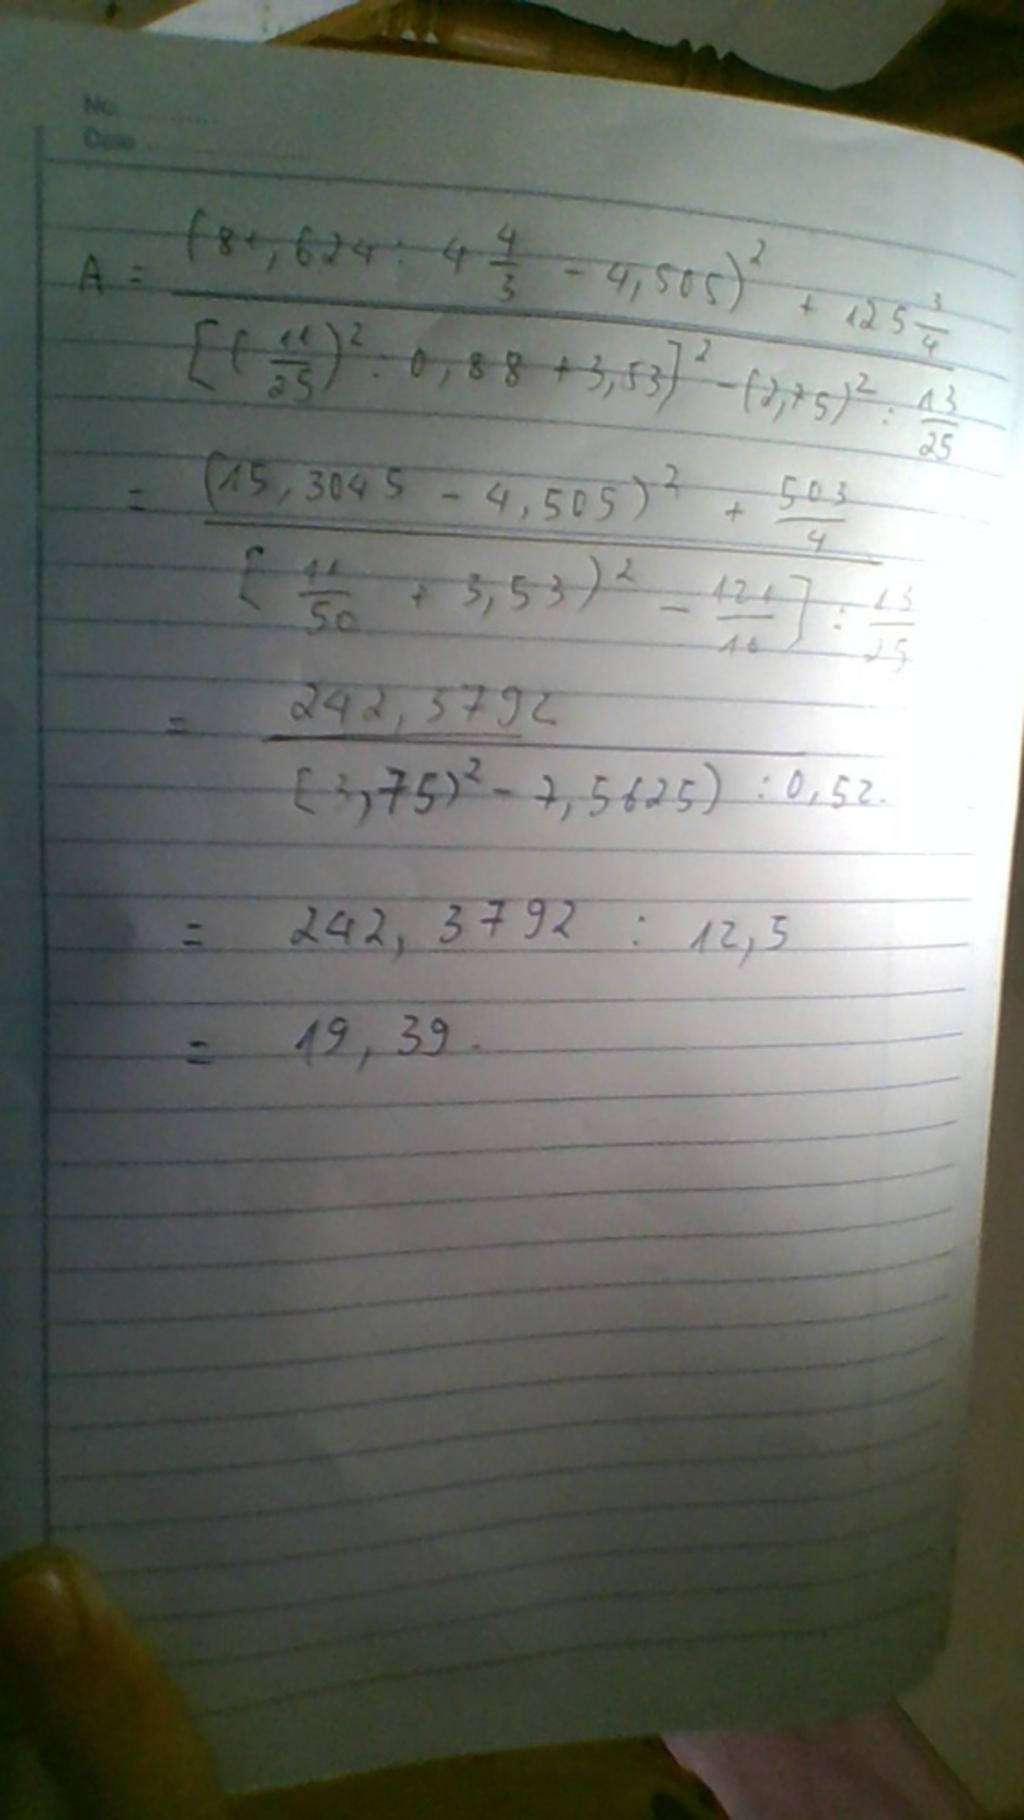 No.
Date
A = ((81,624 : 4 4/3 - 4,505)² + 125 3/4) / ([(11/25)² : 0,88 + 3,53]² - (2,75)² : 13/25)
= ((15,3045 - 4,505)² + 503/4) / ([11/50 + 3,53)² - 121/16] : 13/25)
= 242,3792 / ([3,75)² - 7,5625) : 0,52.
= 242,3792 : 12,5
= 19,39.